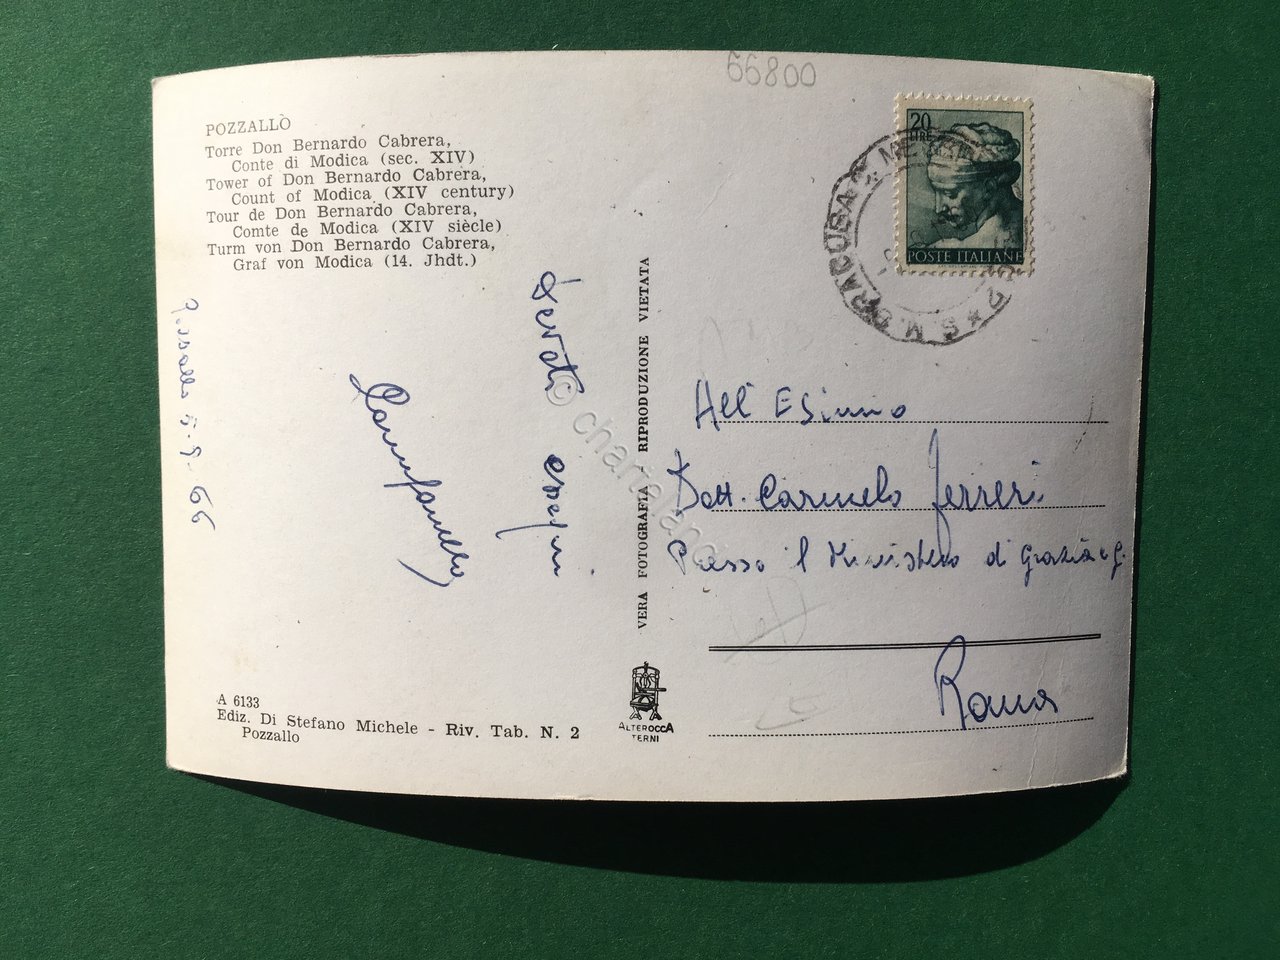 66800
POZZALLO
Torre Don Bernardo Cabrera,
Conte di Modica (sec. XIV)
Tower of Don Bernardo Cabrera,
Count of Modica (XIV century)
Tour de Don Bernardo Cabrera,
Comte de Modica (XIV siècle)
Turm von Don Bernardo Cabrera,
Graf von Modica (14. Jhdt.)
20
LIRE
POSTE ITALIANE
SIRACUSA
Pozzallo 5-9-66
Devoti ossequi
VERA FOTOGRAFIA RIPRODUZIONE VIETATA
© cartoland
All' Esimio
Dott. Carmelo Ferreri
Presso il Ministero di Grazia e G.
Roma
A 6133
Ediz. Di Stefano Michele - Riv. Tab. N. 2
Pozzallo
ALTEROCCA
TERNI